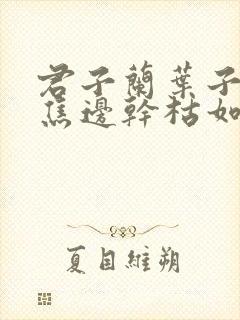 君子蘭葉子
焦邊幹枯如
夏目維朔